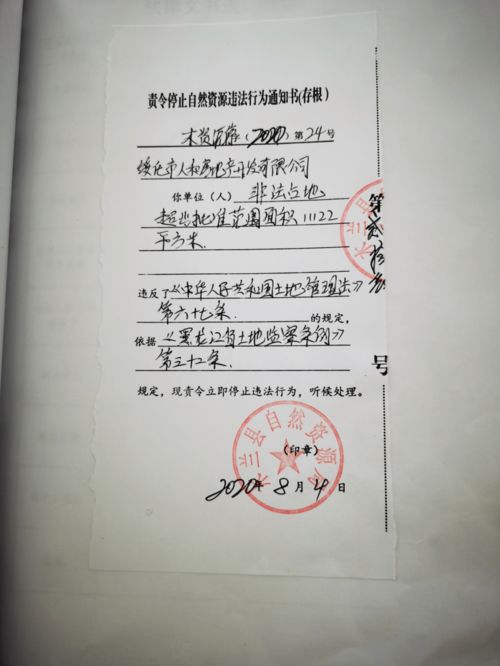 责令停止自然资源违法行为通知书(存根)
木资 (2020)第24号
绥化市人和房地产开发有限公司
你单位(人) 非法占地
超出批准范围面积11122
平方米.
违反了《中华人民共和国土地管理法》
第六十七条. 的规定,
依据《黑龙江省土地监察条例》
第三十二条.
规定,现责令立即停止违法行为,听候处理。
木兰县自然资源局
(印章)
2020年8月4日
木兰县
第贰拾
号